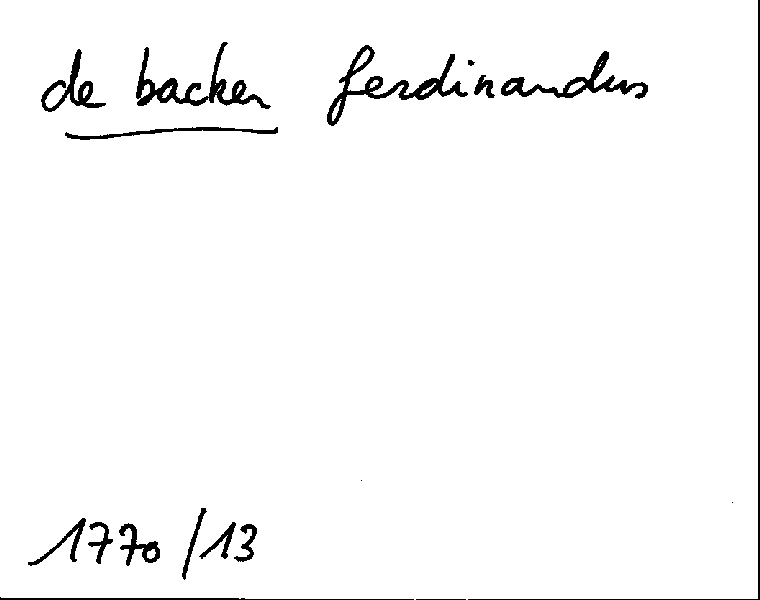 de backer ferdinandus
1770/13